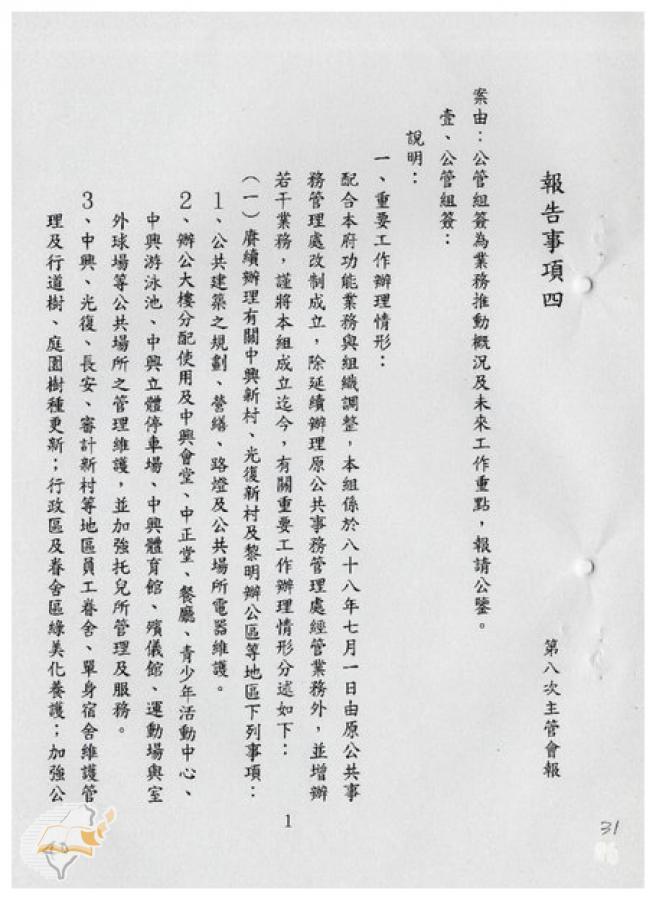 報告事項四
第八次主管會報
案由：公管組簽為業務推動概況及未來工作重點，報請公鑒。
壹、公管組簽：
說明：
一、重要工作辦理情形：
配合本府功能業務與組織調整，本組係於八十八年七月一日由原公共事
務管理處改制成立，除延續辦理原公共事務管理處經管業務外，並增辦
若干業務，謹將本組成立迄今，有關重要工作辦理情形分述如下：
（一）賡續辦理有關中興新村、光復新村及黎明辦公區等地區下列事項：
1、公共建築之規劃、營繕、路燈及公共場所電器維護。
2、辦公大樓分配使用及中興會堂、中正堂、餐廳、青少年活動中心、
中興游泳池、中興立體停車場、中興體育館、殯儀館、運動場與室
外球場等公共場所之管理維護，並加強托兒所管理及服務。
3、中興、光復、長安、審計新村等地區員工眷舍、單身宿舍維護管
理及行道樹、庭園樹種更新；行政區及眷舍區綠美化養護；加強公
1
31